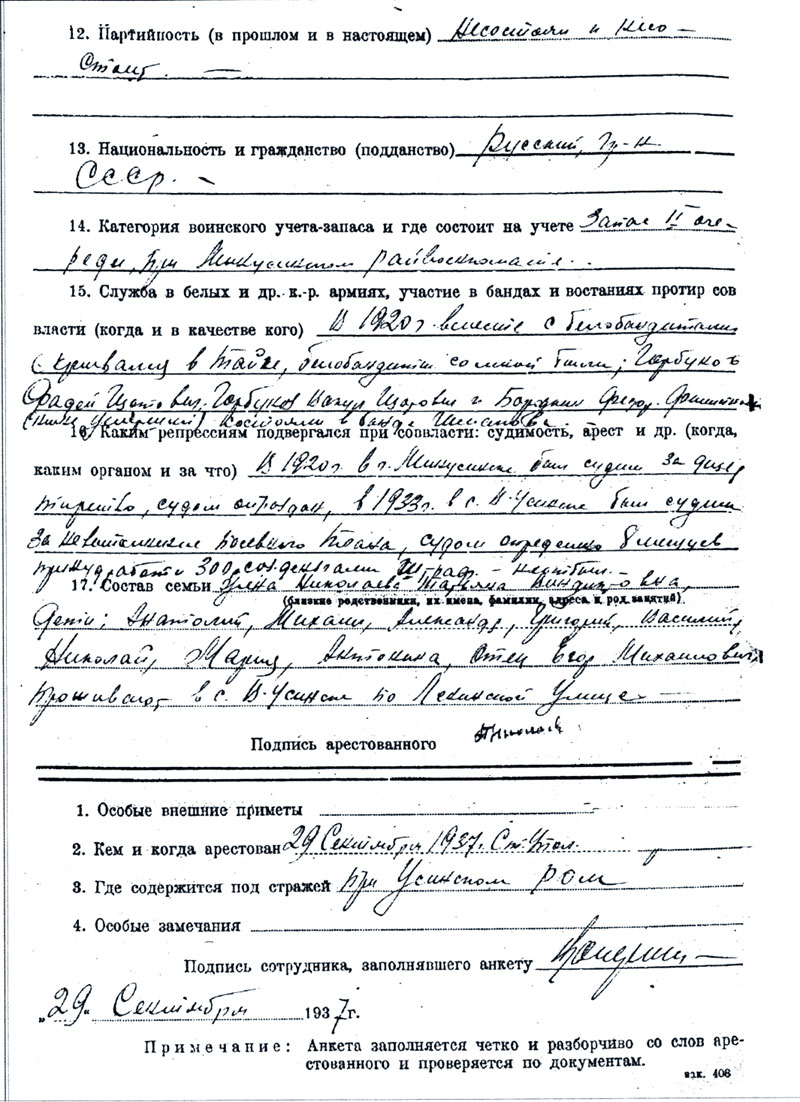 12. Партийность (в прошлом и в настоящем) Несостоял и несо-
стоит. —
13. Национальность и гражданство (подданство) Русский, гр-н
СССР. -
14. Категория воинского учета-запаса и где состоит на учете Запас II оче-
реди, при Минусинском райвоенкомате..
15. Служба в белых и др. к.-р. армиях, участие в бандах и востаниях протир сов
власти (когда и в качестве кого) В 1920 г вместе с белобандитами
скрывался в тайге, белобандиты со мной были; Горбунов
Фадей Горбунов и Федор
состояли в банде
16. Каким репрессиям подвергался при совласти: судимость, арест и др. (когда,
каким органом и за что) В 1920 г. в г. Минусинске был судим за дезер-
тирство, судом оправдан, в 1933 г. в с. В-Усинске был судим
за невыполнение посевного плана, судом определено 8 месяцев
принудработ и 300 штраф. -
17. Состав семьи Жена Николаева Татьяна
(близкие родственники, их имена, фамилии, адреса и род занятий)
Дети; Анатолий, Михаил, Александр, Григорий, Василий,
Николай, Мария, Антонина, Отец Егор Михайлович
Проживают в с. В-Усинске по Ленинской улице —
Подпись арестованного
1. Особые внешние приметы
2. Кем и когда арестован 29 Сентября 1937г.
3. Где содержится под стражей при Усинском РОМ
4. Особые замечания
Подпись сотрудника, заполнявшего анкету
„29“ Сентября 1937г.
Примечание: Анкета заполняется четко и разборчиво со слов аре-
стованного и проверяется по документам.
зак. 406